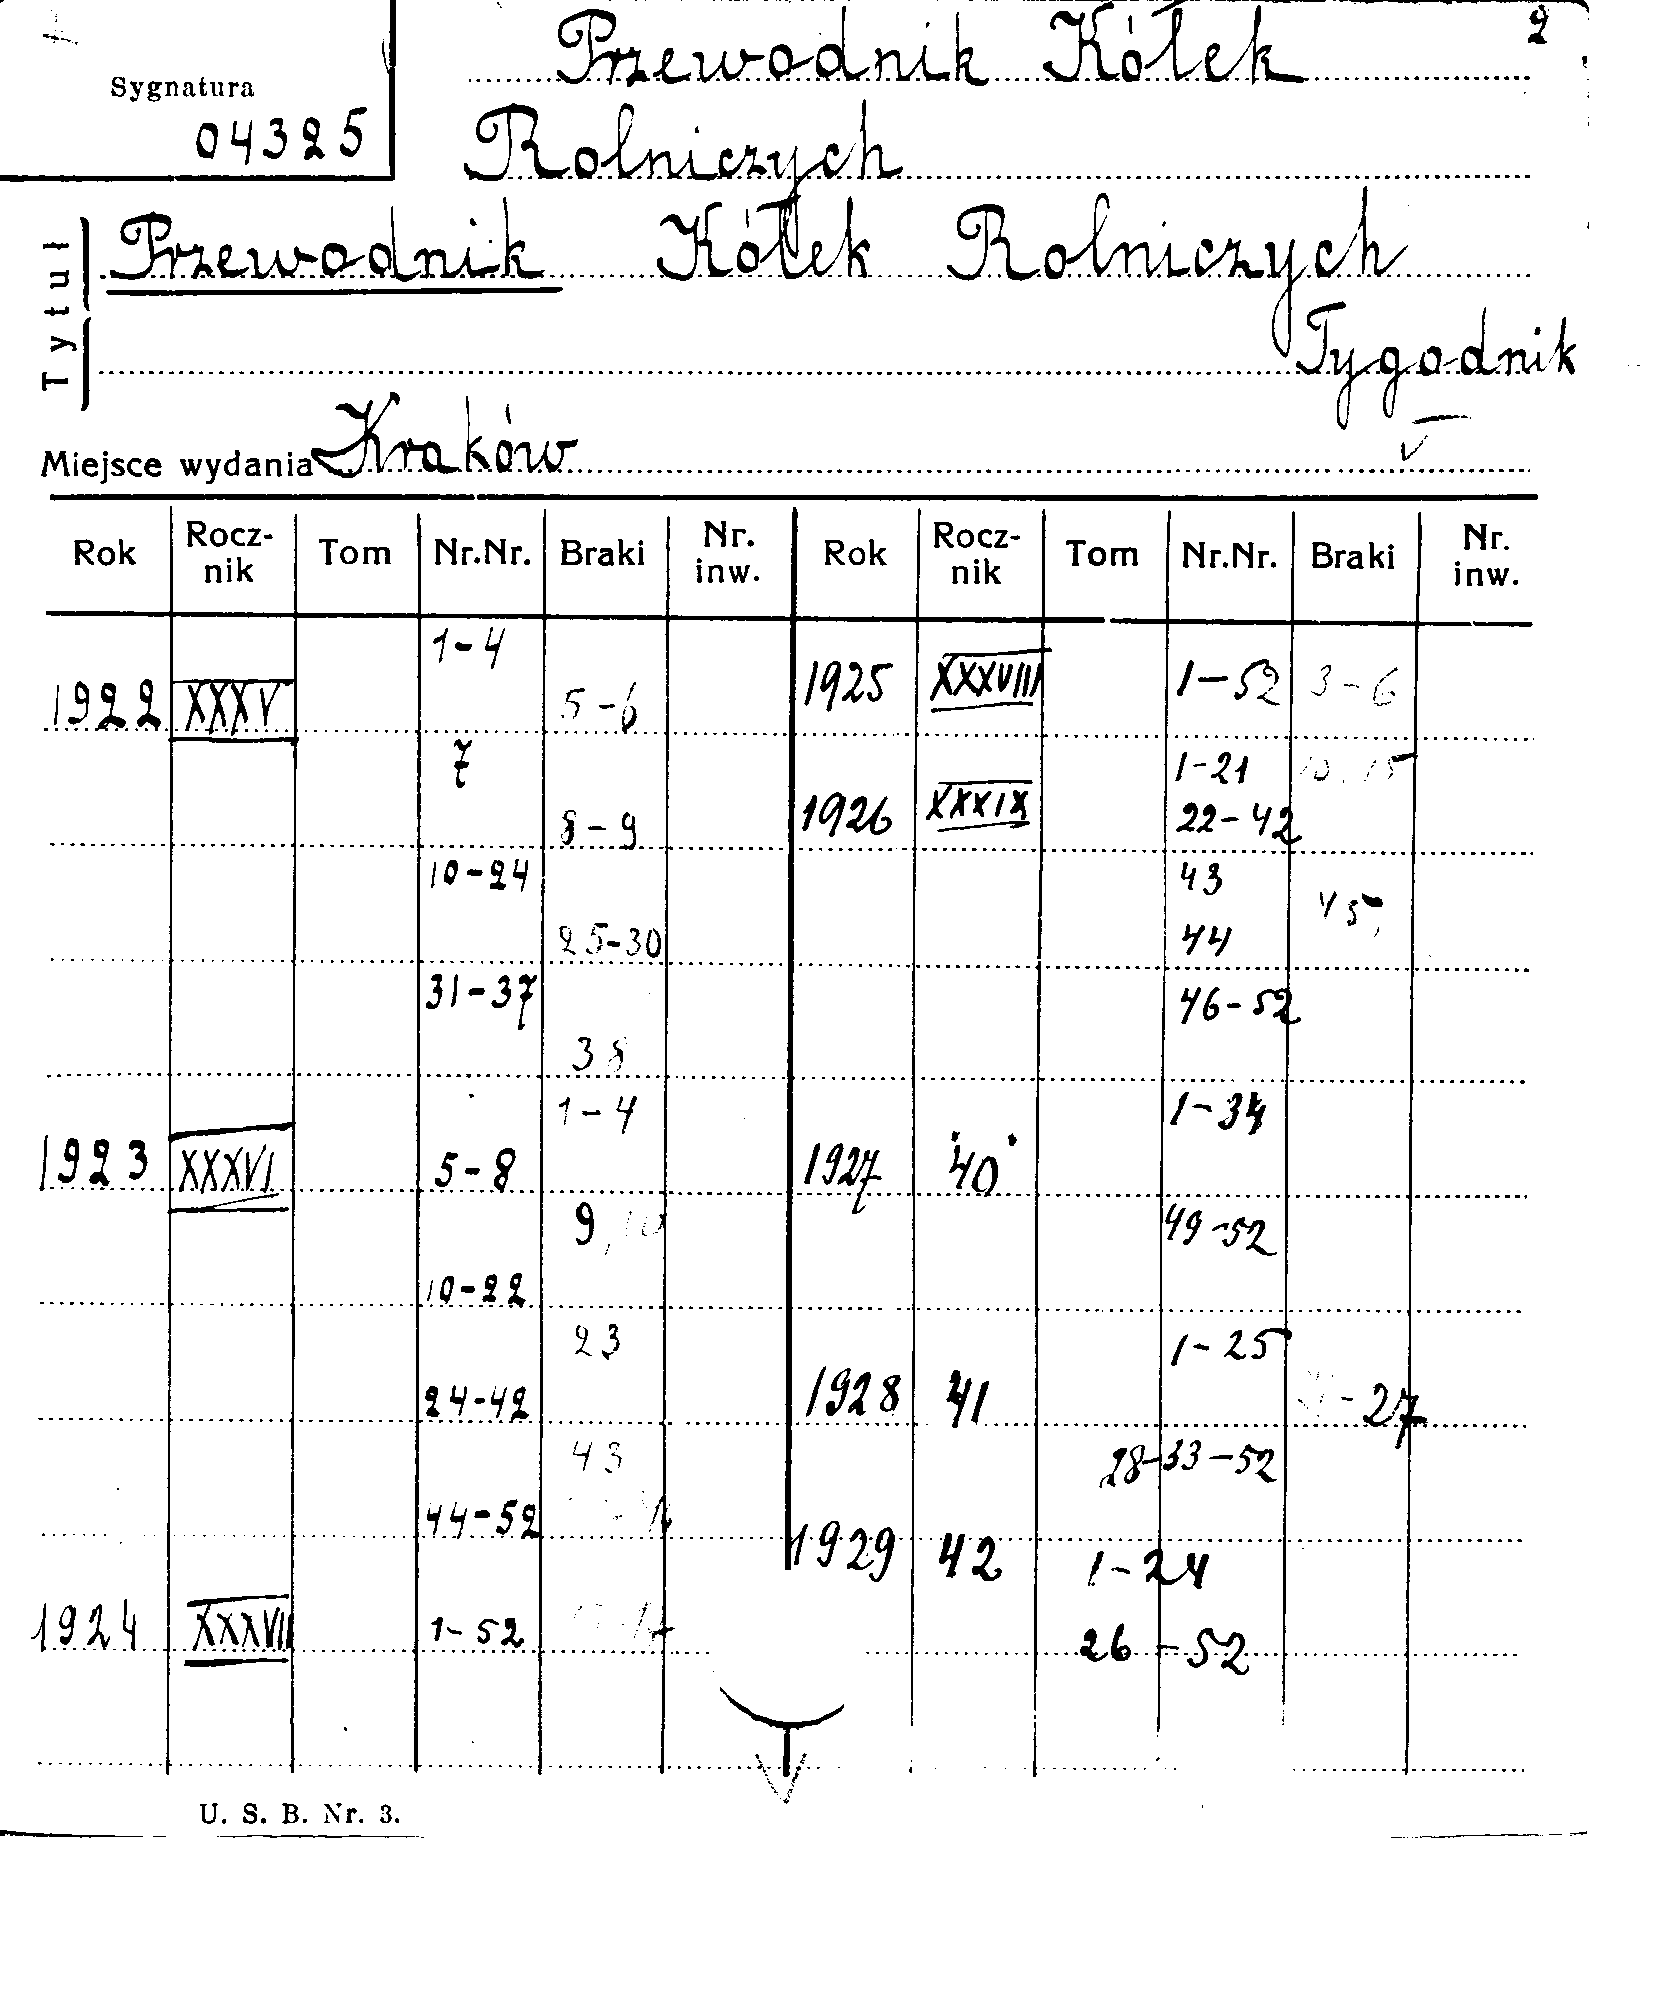 2
Przewodnik Kółek
Sygnatura
04325
Rolniczych
Tytuł
Przewodnik Kółek Rolniczych
Tygodnik
Miejsce wydania Kraków
Rok Rocz-nik Tom Nr.Nr. Braki Nr. inw. Rok Rocz-nik Tom Nr.Nr. Braki Nr. inw.
1-4
1922 XXXV 5-6
7
8-9
10-24
25-30
31-37
38
1-4
1923 XXXVI 5-8
9,10
10-22
23
24-42
43
44-52
1924 XXXVII 1-52
1925 XXXVIII 1-52 3-6
1-21 10, 15
1926 XXXIX 22-42
43
45,
44
46-52
1-34
1927 40
49-52
1-25
1928 41 -27
28-33-52
1929 42 1-24
26-52
U. S. B. Nr. 3.